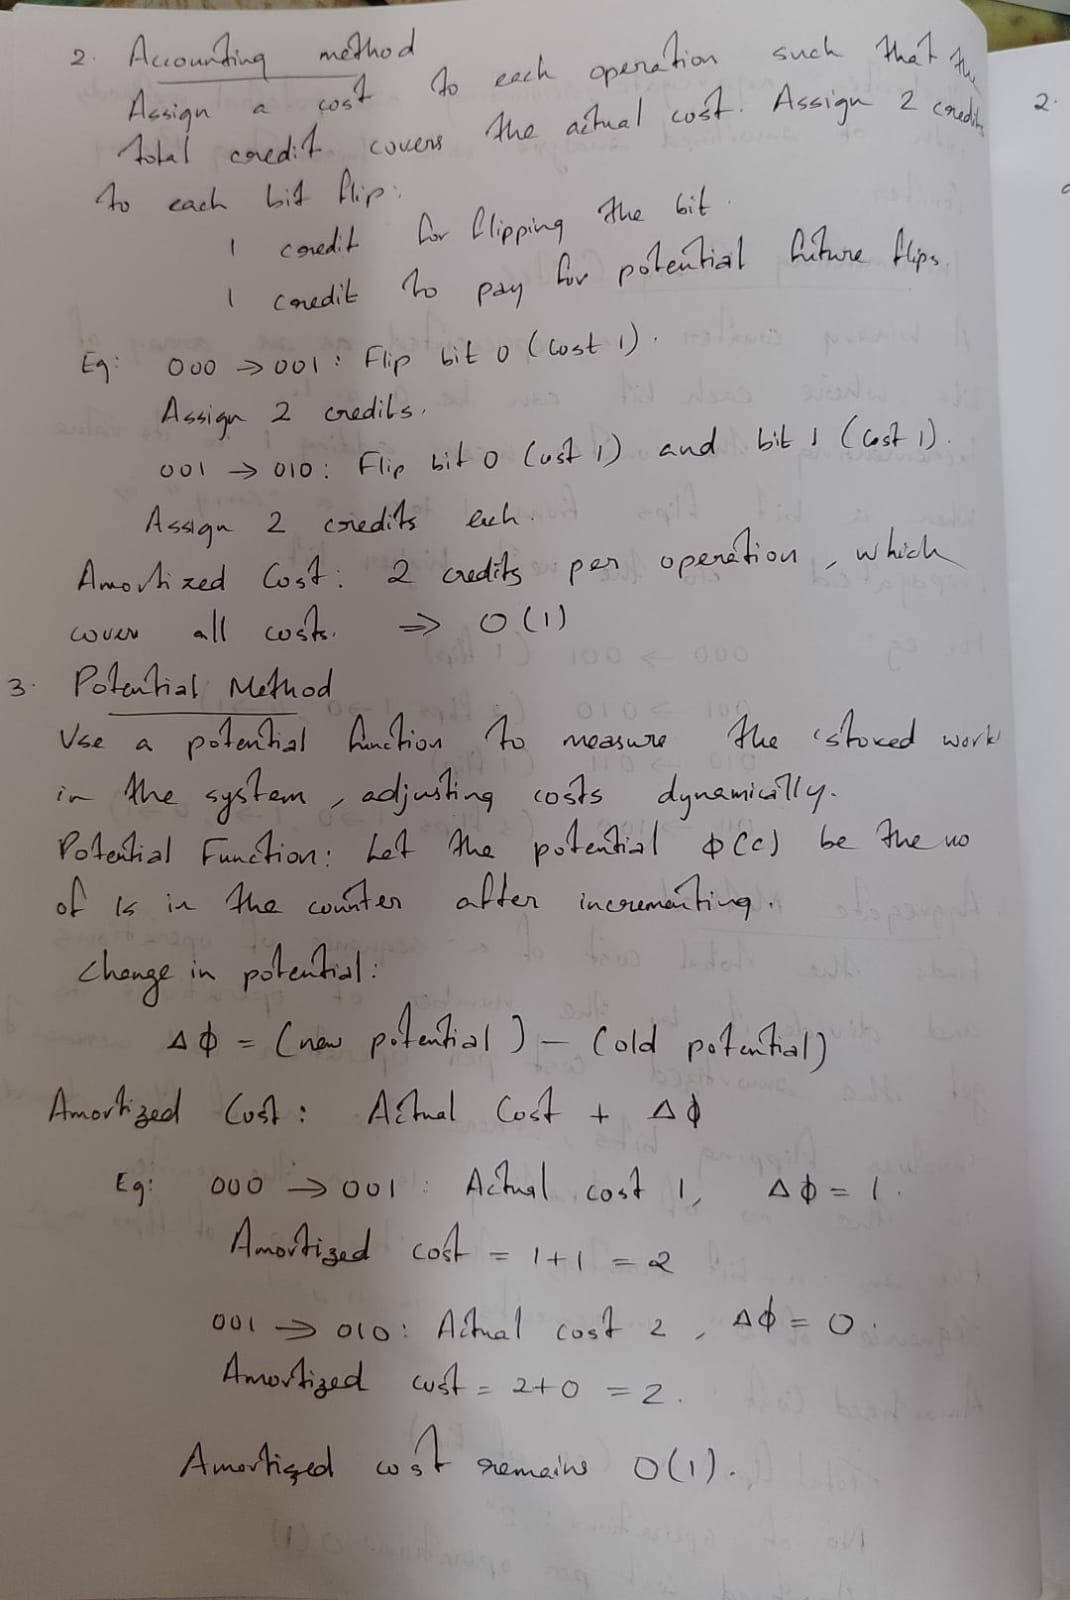 2. Accounting method
Assign a cost to each operation such that the
total credit covers the actual cost. Assign 2 credits
to each bit flip:
1 credit for flipping the bit.
1 credit to pay for potential future flips.
Eg: 000 → 001 : Flip bit 0 (cost 1).
Assign 2 credits.
001 → 010 : Flip bit 0 (cost 1) and bit 1 (cost 1).
Assign 2 credits each.
Amortized Cost: 2 credits per operation, which
cover all costs. ⇒ O(1)
3. Potential Method
Use a potential function to measure the 'stored work'
in the system, adjusting costs dynamically.
Potential Function: Let the potential ϕ(c) be the no
of 1s in the counter after incrementing.
Change in potential:
Δϕ = (new potential) - (old potential)
Amortized Cost: Actual Cost + Δϕ
Eg: 000 → 001 : Actual cost 1, Δϕ = 1.
Amortized cost = 1+1 = 2
001 → 010 : Actual cost 2, Δϕ = 0.
Amortized cost = 2+0 = 2.
Amortized cost remains O(1).
2.